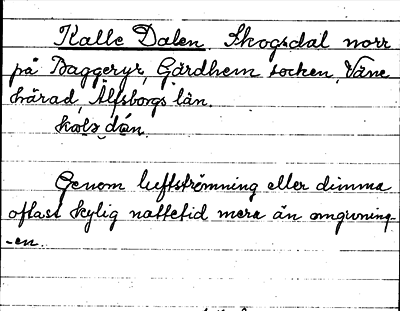 Kalle Dalen. Skogsdal norr
på Baggeryr, Gärdhem socken, Väne
härad, Älfsborgs län.
Genom luftströmning eller dimma
oftast kylig nattetid mera än omgivning
-en.